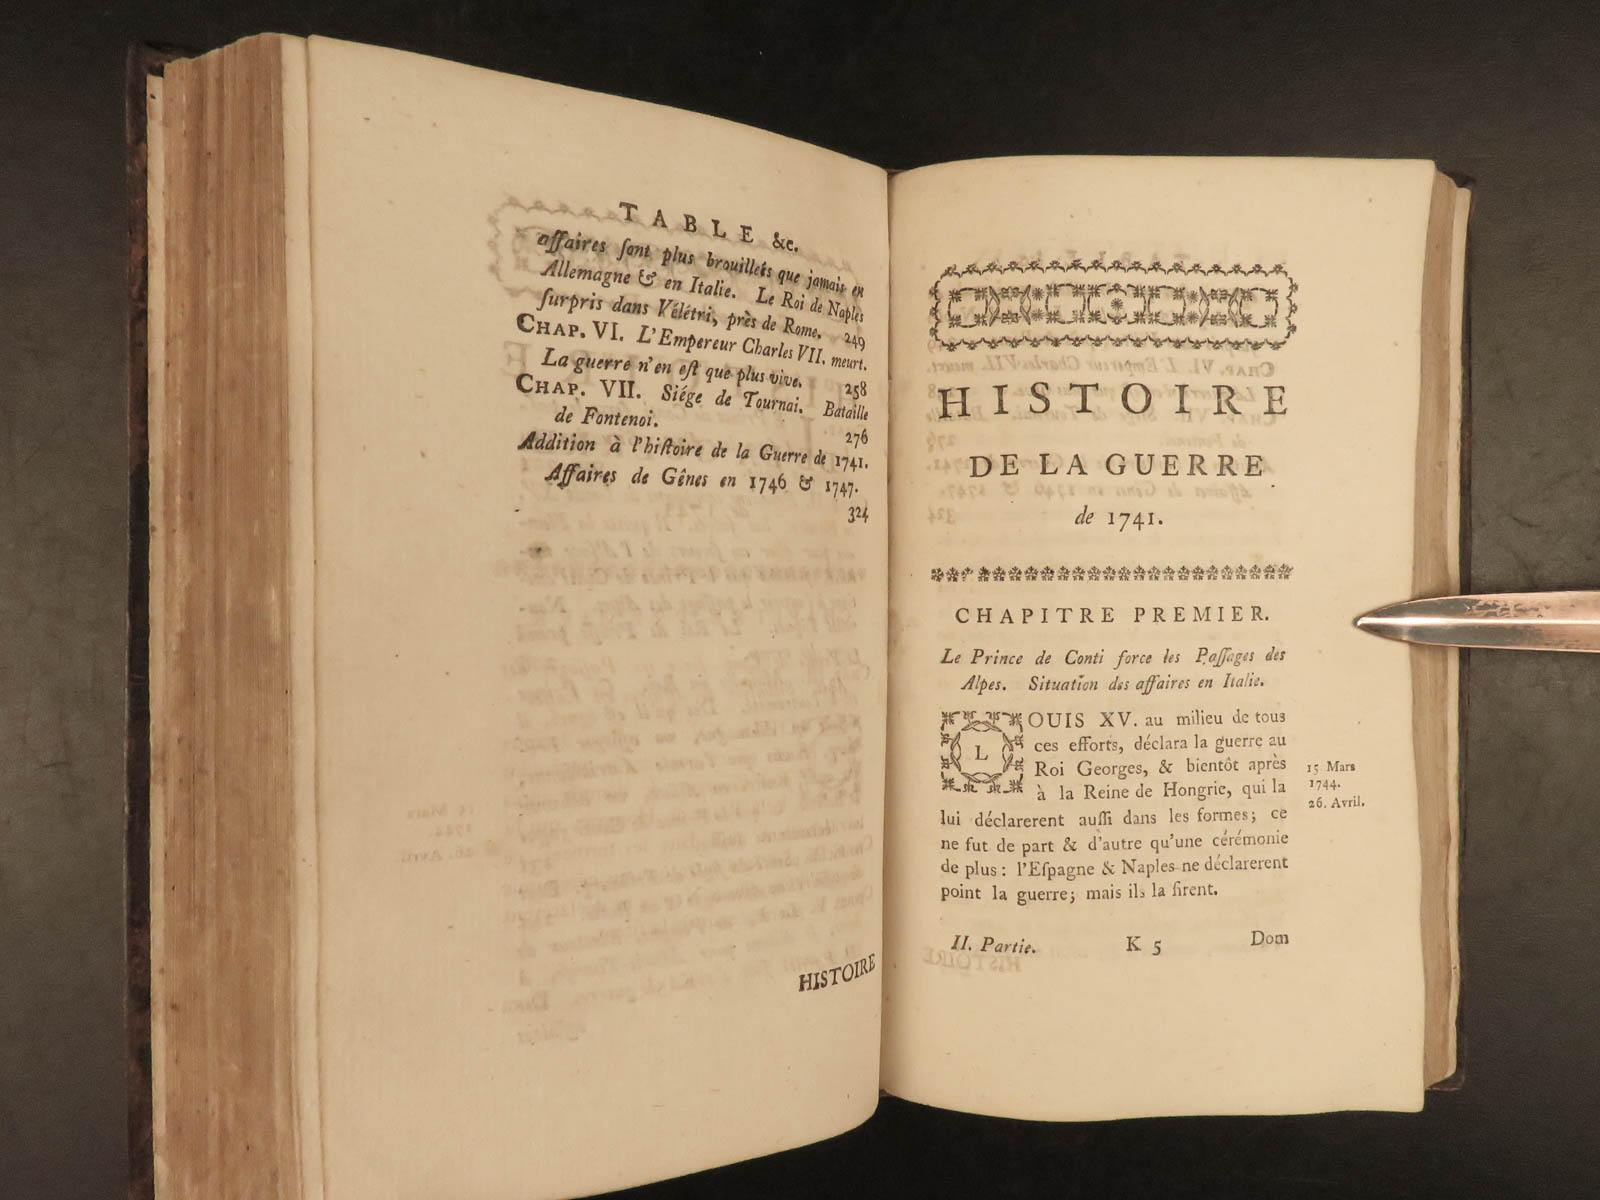 TABLE &c.
affaires ſont plus brouilleés que jamais en
Allemagne & en Italie. Le Roi de Naples
ſurpris dans Vélétri, près de Rome. 249
CHAP. VI. L'Empereur Charles VII. meurt.
La guerre n'en eſt que plus vive. 258
CHAP. VII. Siége de Tournai. Bataille
de Fontenoi. 276
Addition à l'hiſtoire de la Guerre de 1741.
Affaires de Gênes en 1746 & 1747.
324
HISTOIRE
HISTOIRE
DE LA GUERRE
de 1741.
CHAPITRE PREMIER.
Le Prince de Conti force les Paſſages des
Alpes. Situation des affaires en Italie.
LOUIS XV. au milieu de tous
ces efforts, déclara la guerre au
Roi Georges, & bientôt après
à la Reine de Hongrie, qui la
lui déclarerent auſſi dans les formes; ce
ne fut de part & d'autre qu'une cérémonie
de plus: l'Eſpagne & Naples ne déclarerent
point la guerre; mais ils la firent.
15 Mars
1744.
26. Avril.
II. Partie. K 5 Dom